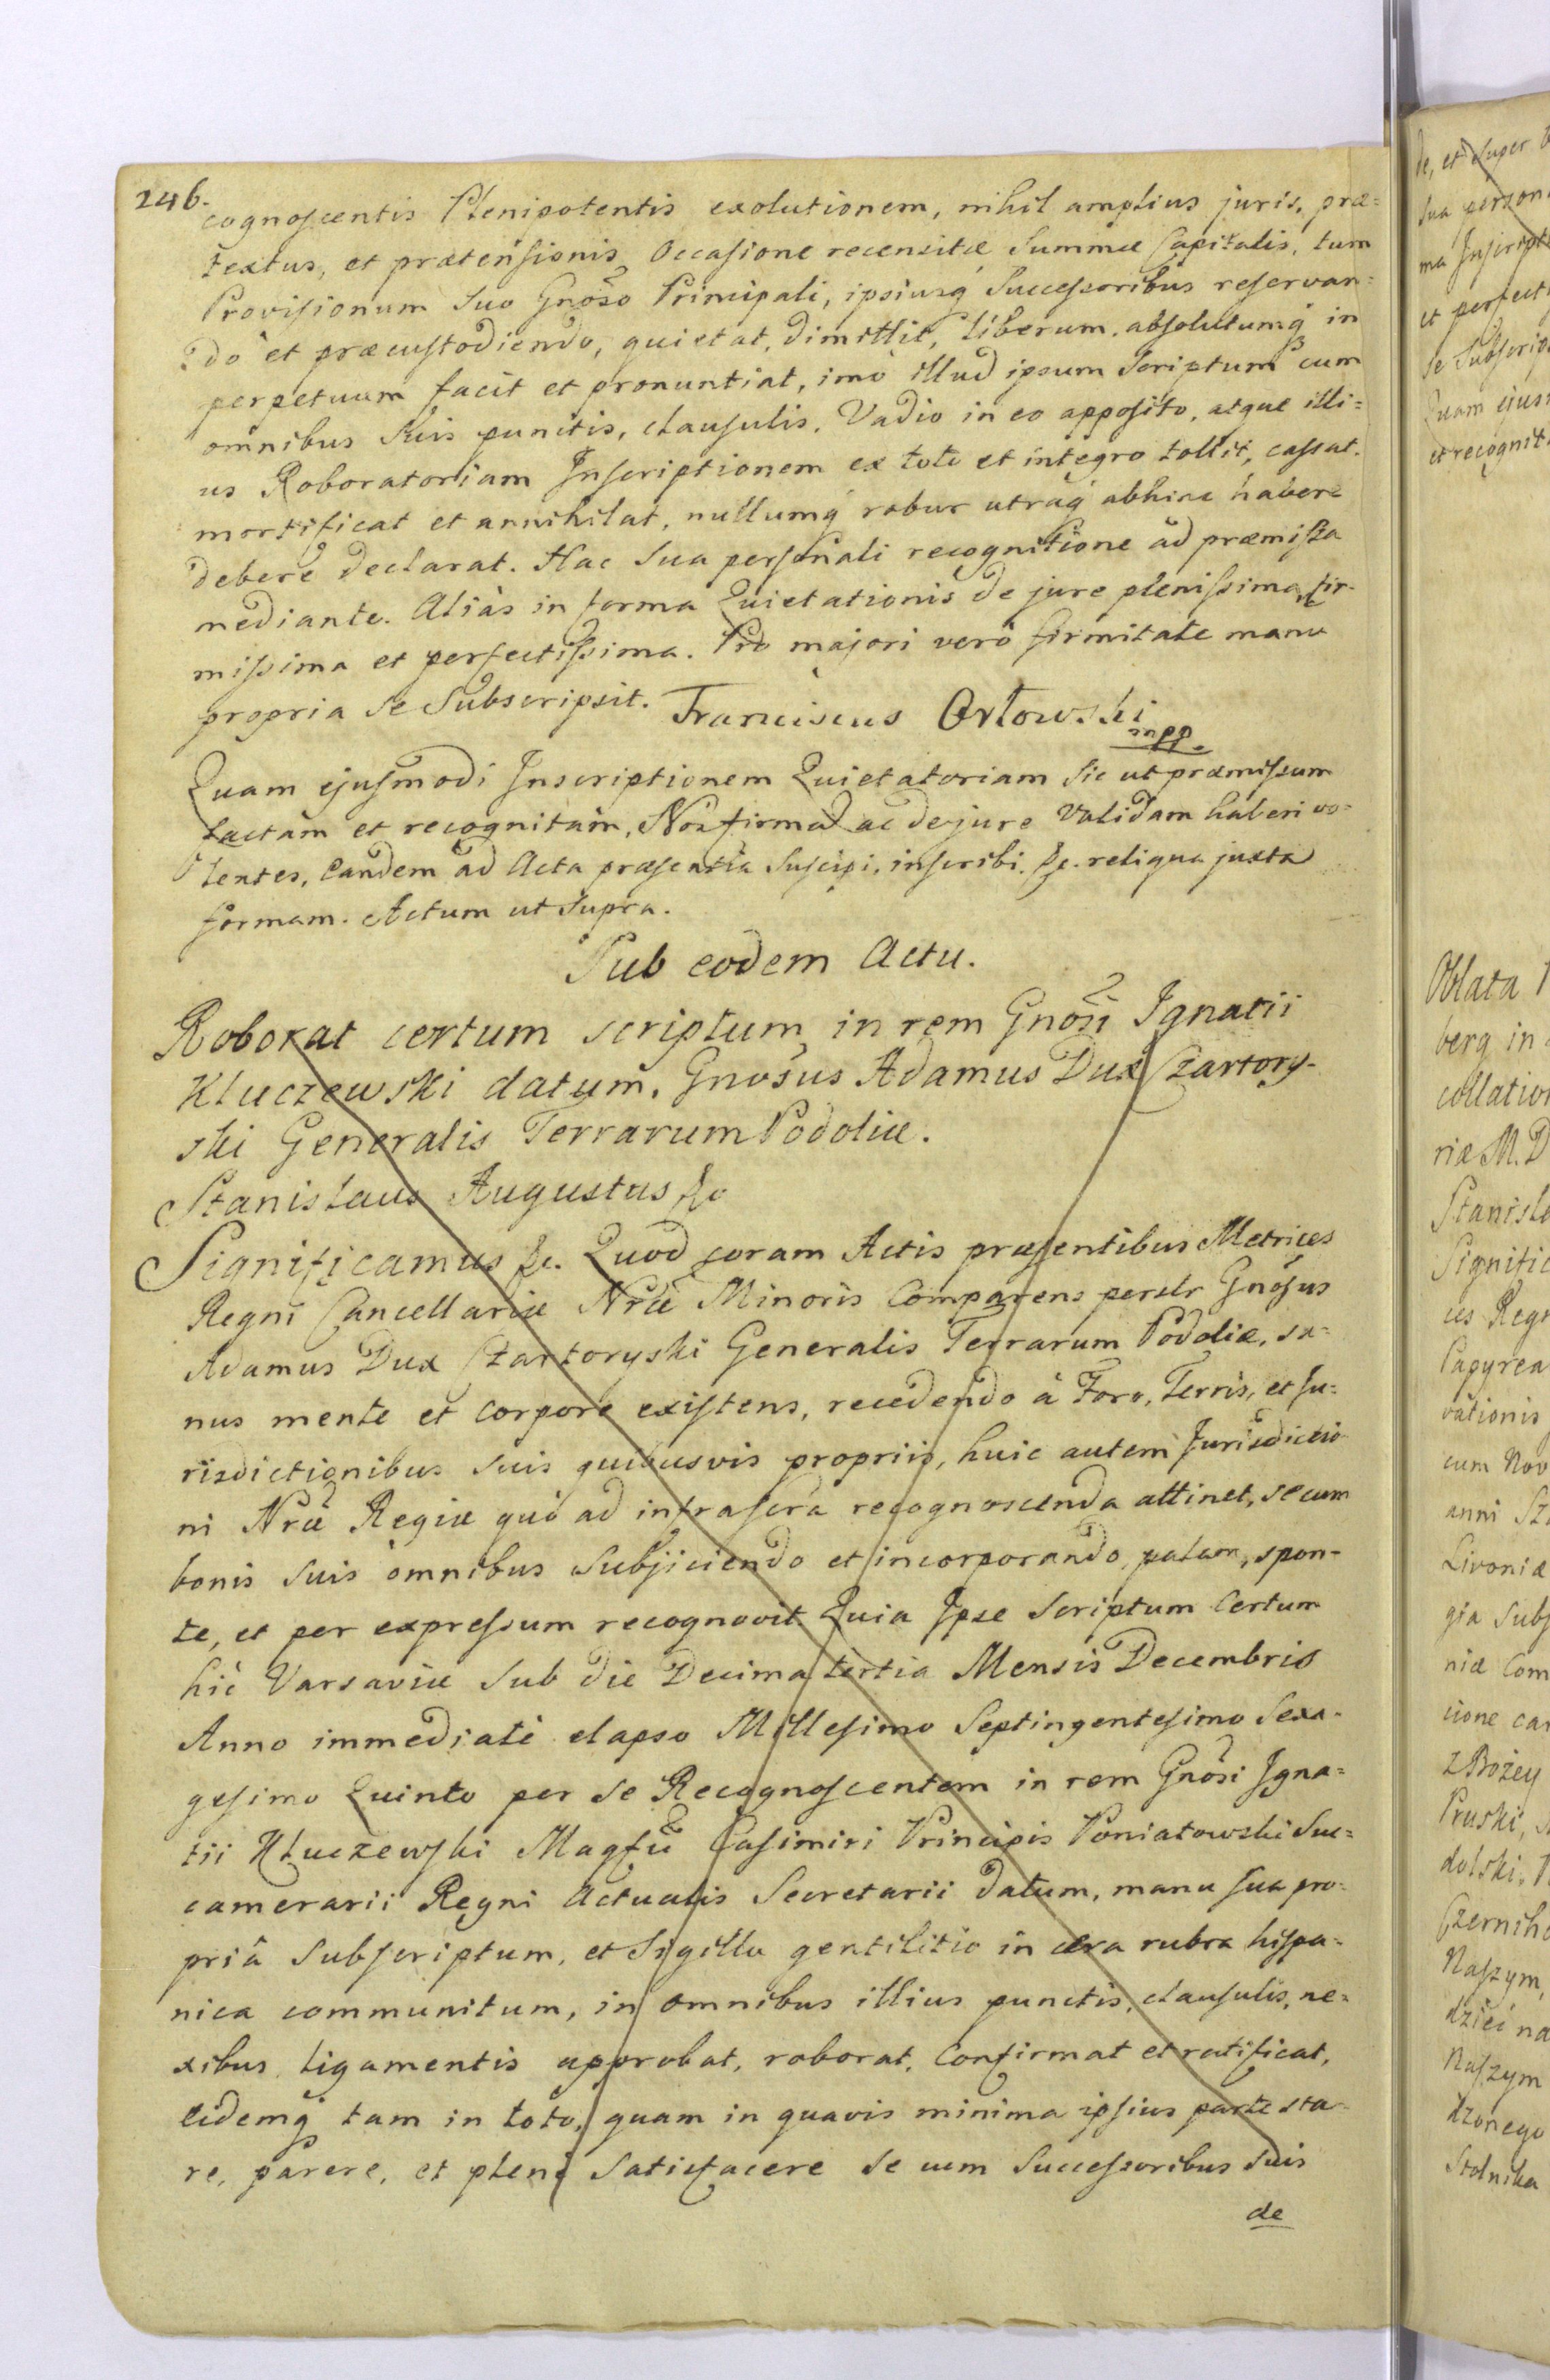 246.
cognoscentis Plenipotentis exolutionem, nihil amplius juris, præ=
textus, et prætensionis Occasione recensitæ Summæ Capitalis, tum
Provisionum Suo Gnoso Principali, ipsiusq Successoribus reservan=
do et præcustodiendo, quietat, dimittit, liberum, absolutumq in
perpetuum facit et pronuntiat, imò illud ipsum Scriptum cum
omnibus Suis punctis, clausulis, Vadio in eo apposito, atque illi=
us Roboratoriam Inscriptionem ex toto et integro tollit, cassat,
mortificat et annihilat, nullumq robur utraq abhinc habere
debere declarat. Hac Sua personali recognitione ad præmissa
mediante. Aliàs in forma Quietationis de jure plenissima, fir-
missima et perfectissima. Pro majori verò firmitate manu
propria se Subscripsit. Franciscus Orłowski
mpp.
Quam ejusmodi Inscriptionem Quietatoriam Sic ut præmissum
factam et recognitam, Nos firmã ac de jure Validam haberi vo=
lentes, Eandem ad Acta præsentia Suscipi, inscribi &c. reliqua juxta
formam. Actum ut Supra.
Sub eodem Actu.
Roborat certum scriptum in rem Gnosi Ignatii
Kluczewski datum, Gnosus Adamus Dux Czartory-
ski Generalis Terrarum Podoliæ.
Stanislaus Augustus &c
Significamus &c. Quod coram Actis præsentibus Metrices
Regni Cancellariæ Nræ Minoris Comparens persltr Gnosus
Adamus Dux Czartoryski Generalis Terrarum Podoliæ, sa=
nus mente et corpore existens, recedendo à Foro, Terris, et Ju=
risdictionibus suis quibusvis propriis, huic autem Jurisdictio
ni Nræ Regiæ quò ad infrascra recognoscenda attinet, se cum
bonis suis omnibus subjiciendo et incorporando, palam, spon-
te, et per expressum recognovit. Quia Ipse Scriptum Certum
hic Varsaviæ Sub die Decima tertia Mensis Decembris
Anno immediatè elapso Millesimo Septingentesimo Sexa-
gesimo Quinto per se Recognoscentem in rem Gnosi Igna=
tii Kluczewski Magfci Casimiri Principis Poniatowski Suc=
camerarii Regni Actualis Secretarii datum, manu sua pro=
priâ Subscriptum, et Sigillo gentilitio in cera rubra hispa=
nica communitum, in omnibus illius punctis, clausulis, ne=
xibus, ligamentis approbat, roborat, Confirmat et ratificat,
Eidemq tam in toto, quam in quavis minima ipsius parte sta-
re, parere, et plene Satisfacere se cum Successoribus suis
de
de, et super
sua person
ma Inscript
et perfect
se Subscrip
Quam ejus
et recognit
Oblata
berg in
collation
riæ M. D
Stanisla
Signific
ces Regn
Papyrea
vationis
cum Nov
anni
Livoniæ
gia Subs
niæ Com
cione
z Bożey
Pruski,
dolski,
Czernih
Naszym,
dzieć na
Naszym
dzonego
Stolnika